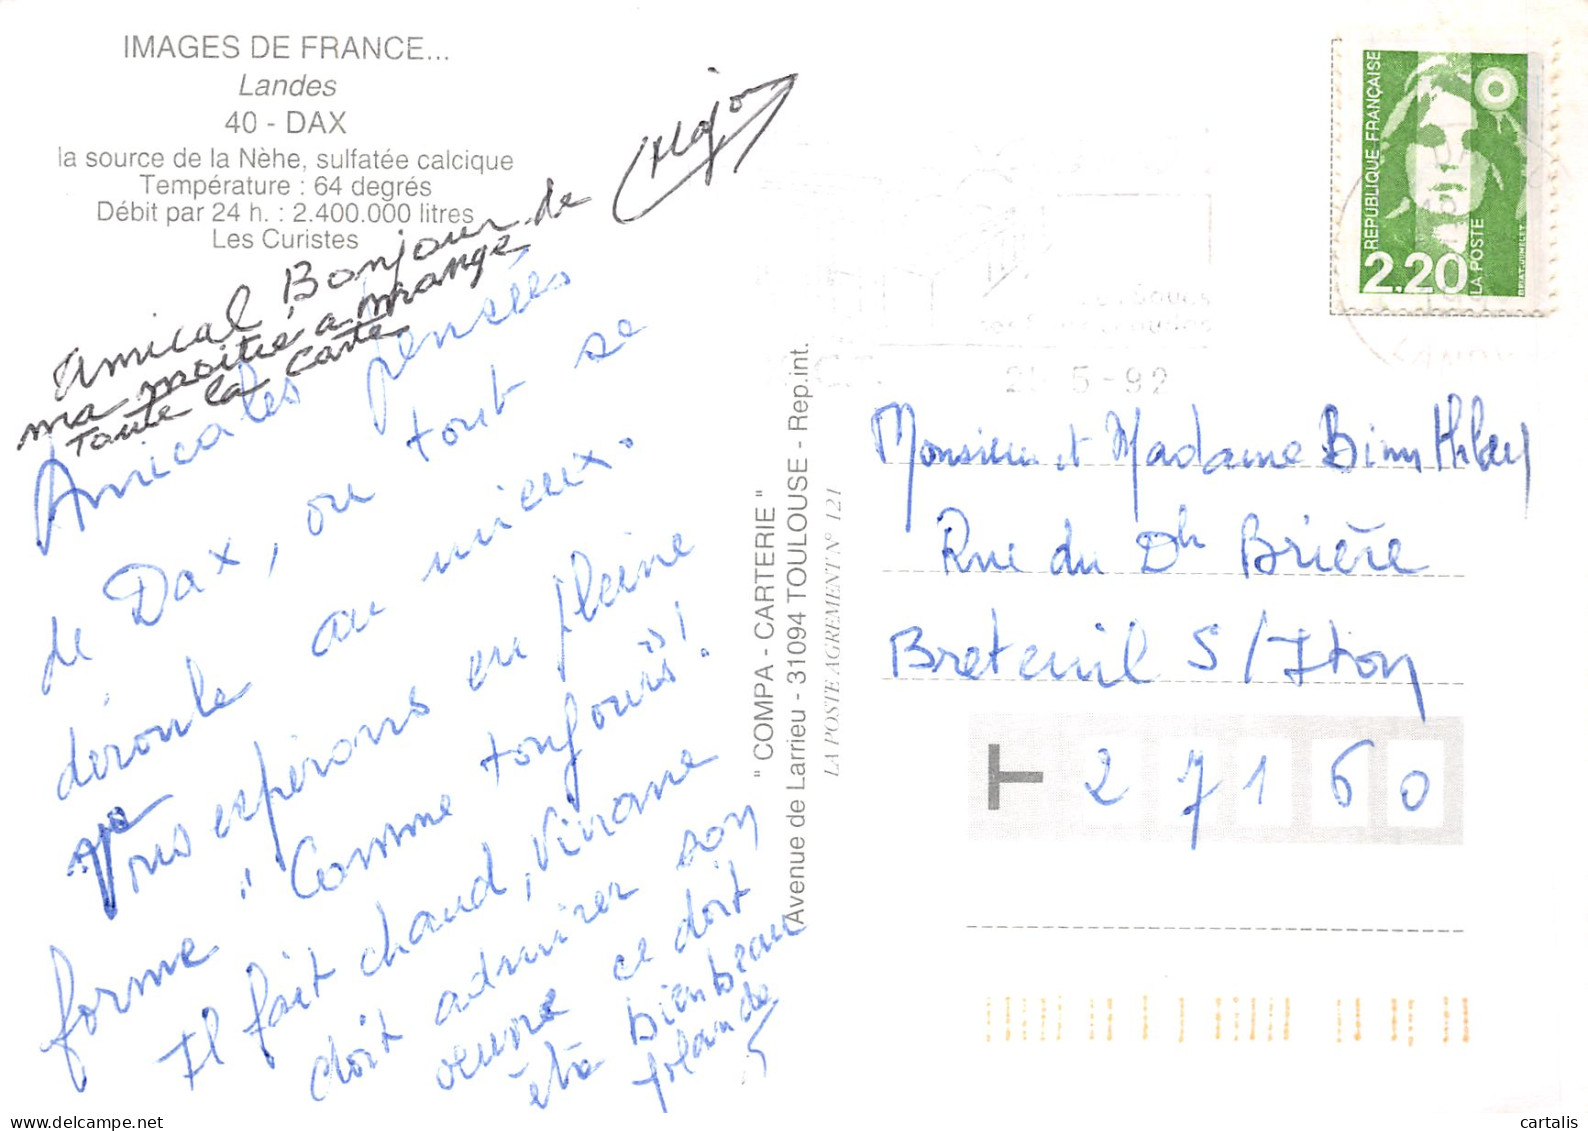 IMAGES DE FRANCE...
Landes
40 - DAX
la source de la Nèhe, sulfatée calcique
Température : 64 degrés
Débit par 24 h. : 2.400.000 litres
Les Curistes
Amical Bonjour de
ma moitié a mangé
toute la carte
Amicales pensées
de Dax, ou tout se
déroule au mieux.
Vous espérons en pleine
forme "Comme toujours"!
Il fait chaud,
doit admirer son
œuvre ce doit
être bien beau
Yolande
" COMPA - CARTERIE "
Avenue de Larrieu - 31094 TOULOUSE - Rep.int.
LA POSTE AGREMENT N° 121
REPUBLIQUE FRANÇAISE
2.20
LA POSTE
5-92
Monsieur et Madame
Rue du Dr Brière
Breteuil S/Iton
27160
delcampe.net
cartalis